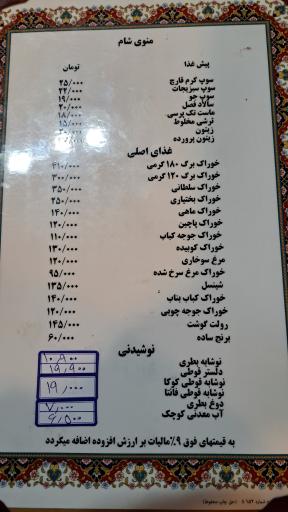 منوی شام
پیش غذا تومان
سوپ کرم قارچ ۲۵/۰۰۰
سوپ سبزیجات ۲۲/۰۰۰
سوپ جو ۱۹/۰۰۰
سالاد فصل ۲۰/۰۰۰
ماست تک پرسی ۱۸/۰۰۰
ترشی مخلوط ۱۵/۰۰۰
زیتون
زیتون پرورده
غذای اصلی
خوراک برگ ۱۸۰ گرمی ۴۱۰/۰۰۰
خوراک برگ ۱۲۰ گرمی ۳۰۰/۰۰۰
خوراک سلطانی ۳۵۰/۰۰۰
خوراک بختیاری ۲۵۰/۰۰۰
خوراک ماهی ۱۴۰/۰۰۰
خوراک پاچین ۱۲۰/۰۰۰
خوراک جوجه کباب ۱۱۰/۰۰۰
خوراک کوبیده ۱۳۰/۰۰۰
مرغ سوخاری ۱۲۰/۰۰۰
خوراک مرغ سرخ شده ۹۵/۰۰۰
شینسل ۱۳۵/۰۰۰
خوراک کباب بناب ۱۴۰/۰۰۰
خوراک جوجه چوبی ۱۲۰/۰۰۰
رولت گوشت ۱۴۵/۰۰۰
برنج ساده ۶۰/۰۰۰
نوشیدنی
نوشابه بطری ۱۰٫۹۰۰
دلستر قوطی ۱۹٫۹۰۰
نوشابه قوطی کوکا ۱۹٫۰۰۰
نوشابه قوطی فانتا
دوغ بطری ۷٫۰۰۰
آب معدنی کوچک ۶٫۵۰۰
به قیمتهای فوق ۹٪مالیات بر ارزش افزوده اضافه میگردد